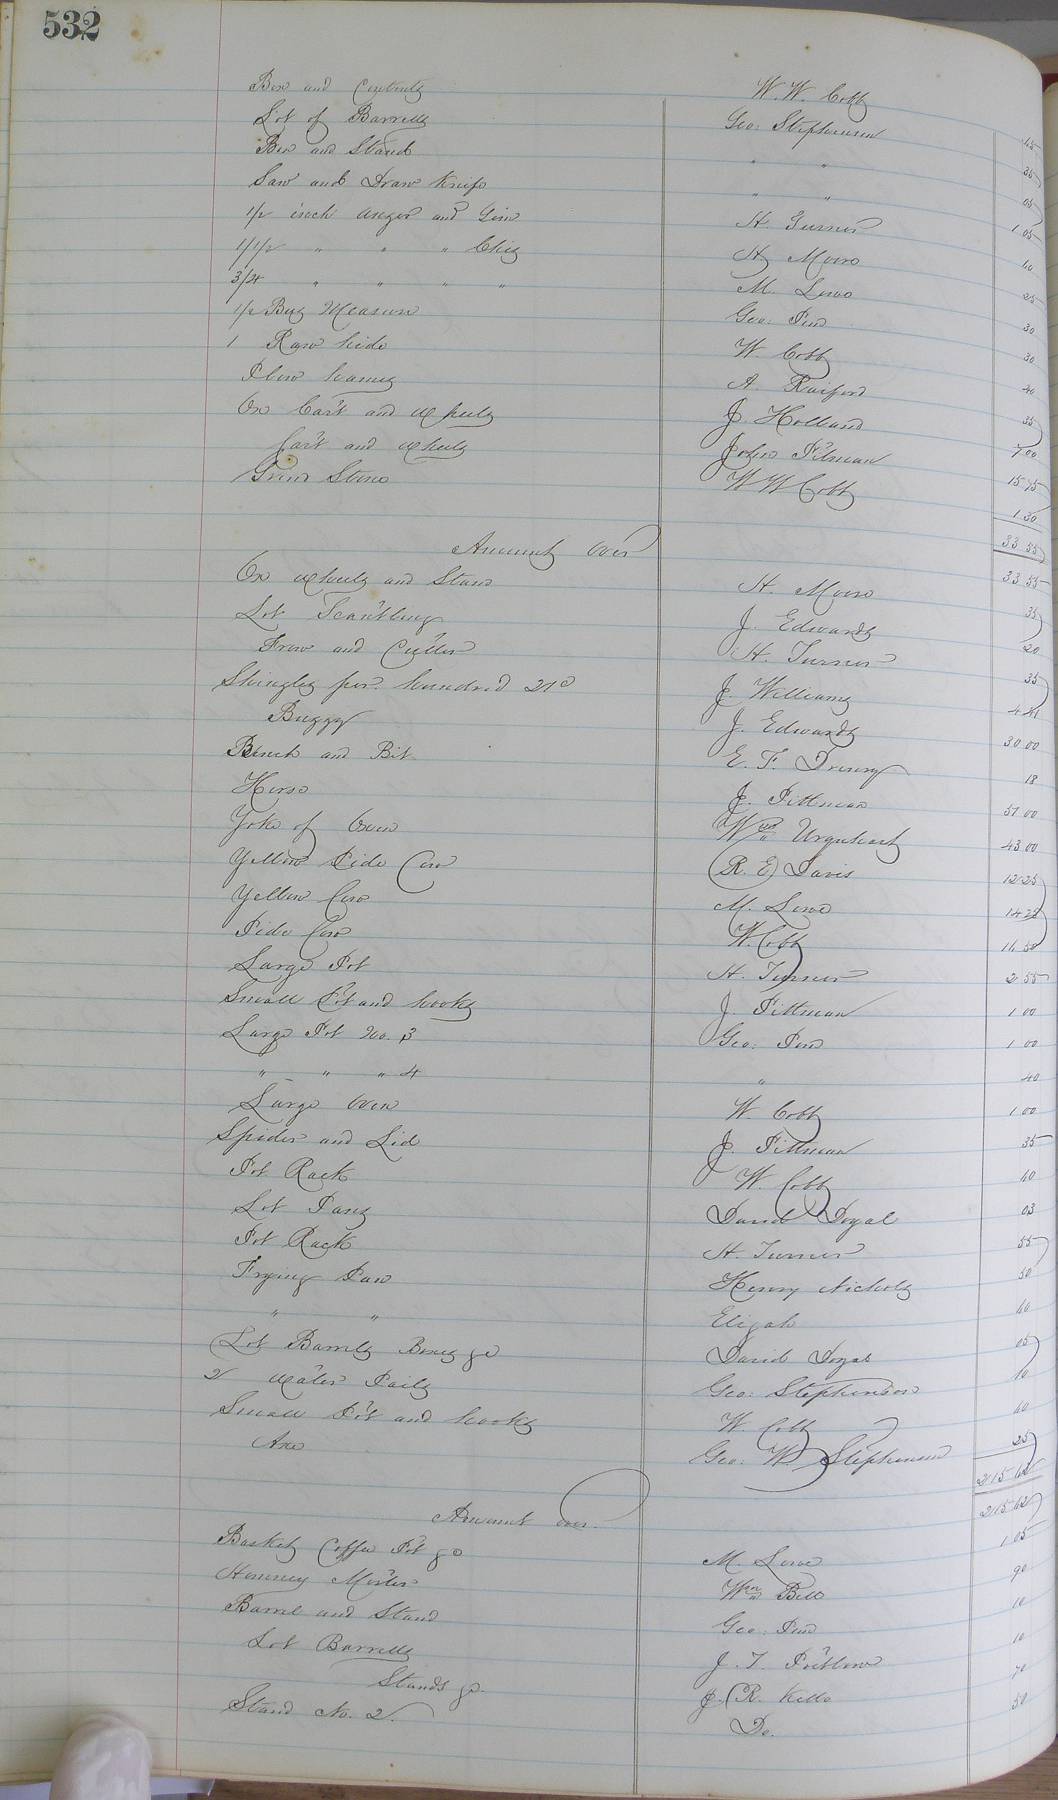 532
Box and Contents W. W. Cobb 45
Lot of Barrells Geo: Stephenson 35
Box and Stand " " 05
Saw and Draw Knife " " 1 05
1/2 inch auger and Gim H. Turner 40
1 1/2 " " " Chiz Hy Moore 25
3/4 " " " " M. Lowe 30
1/2 Bus Measure Geo: Pew 30
1 Raw hide W Cobb 40
Plow hames A. Raiford 35
Ox Cart and wheels J. Holland 7 00
Cart and wheels John Pitman 15 75
Grind Stone W W Cobb 1 30
33 55
Amount Over 33 55
Ox wheels and Stand H. Moore 35
Lot Scantling J. Edwards 20
Frow and Cutter H. Turner 35
Shingles per hundred 21c J. Williams 4 41
Buggy J. Edwards 30 00
Bench and Bit E. F. Drewry 18
Horse J. Pittman 57 00
Yoke of Oxen Wm Urquhart 43 00
Yellow Pide Cow (R. E) Davis 12 25
Yellow Cow M. Lowe 14 25
Pide Cow W. Cobb 11 50
Large Pot H. Turner 2 55
Small Pot and hooks J. Pittman 1 00
Large Pot No. 3 Geo: Pew 1 00
" " " 4 " 40
Large Oven W. Cobb 1 00
Spider and Lid J. Pittman 35
Pot Rack W. Cobb 40
Lot Pans David Doyal 03
Pot Rack H. Turner 55
Frying Pan Henry Nichols 50
" " Elijah 40
Lot Barrells Boxes &c David Doyal 05
2 Water Pails Geo: Stephenson 10
Small Pot and hooks W. Cobb 40
Axe Geo. W. Stephenson 25
215 62
Amount over 215 62
Baskets Coffee Pot &c M. Lowe 1 05
Hominey Morter Wm Bell 90
Barrel and Stand Geo: Pew 10
Lot Barrells J. T. Pretlow 10
Stands &c. J. R. Kello 70
Stand No. 2. Do. 50